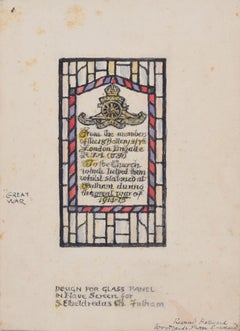 From the members
of the 18th Battery 5th
London Brigade
To the Church
which helped them
whilst stationed at
Fulham during
the great war of
1914-15
"GREAT
WAR"
DESIGN FOR GLASS PANEL
IN Nave Screen for
S. Etheldredas Ch. Fulham